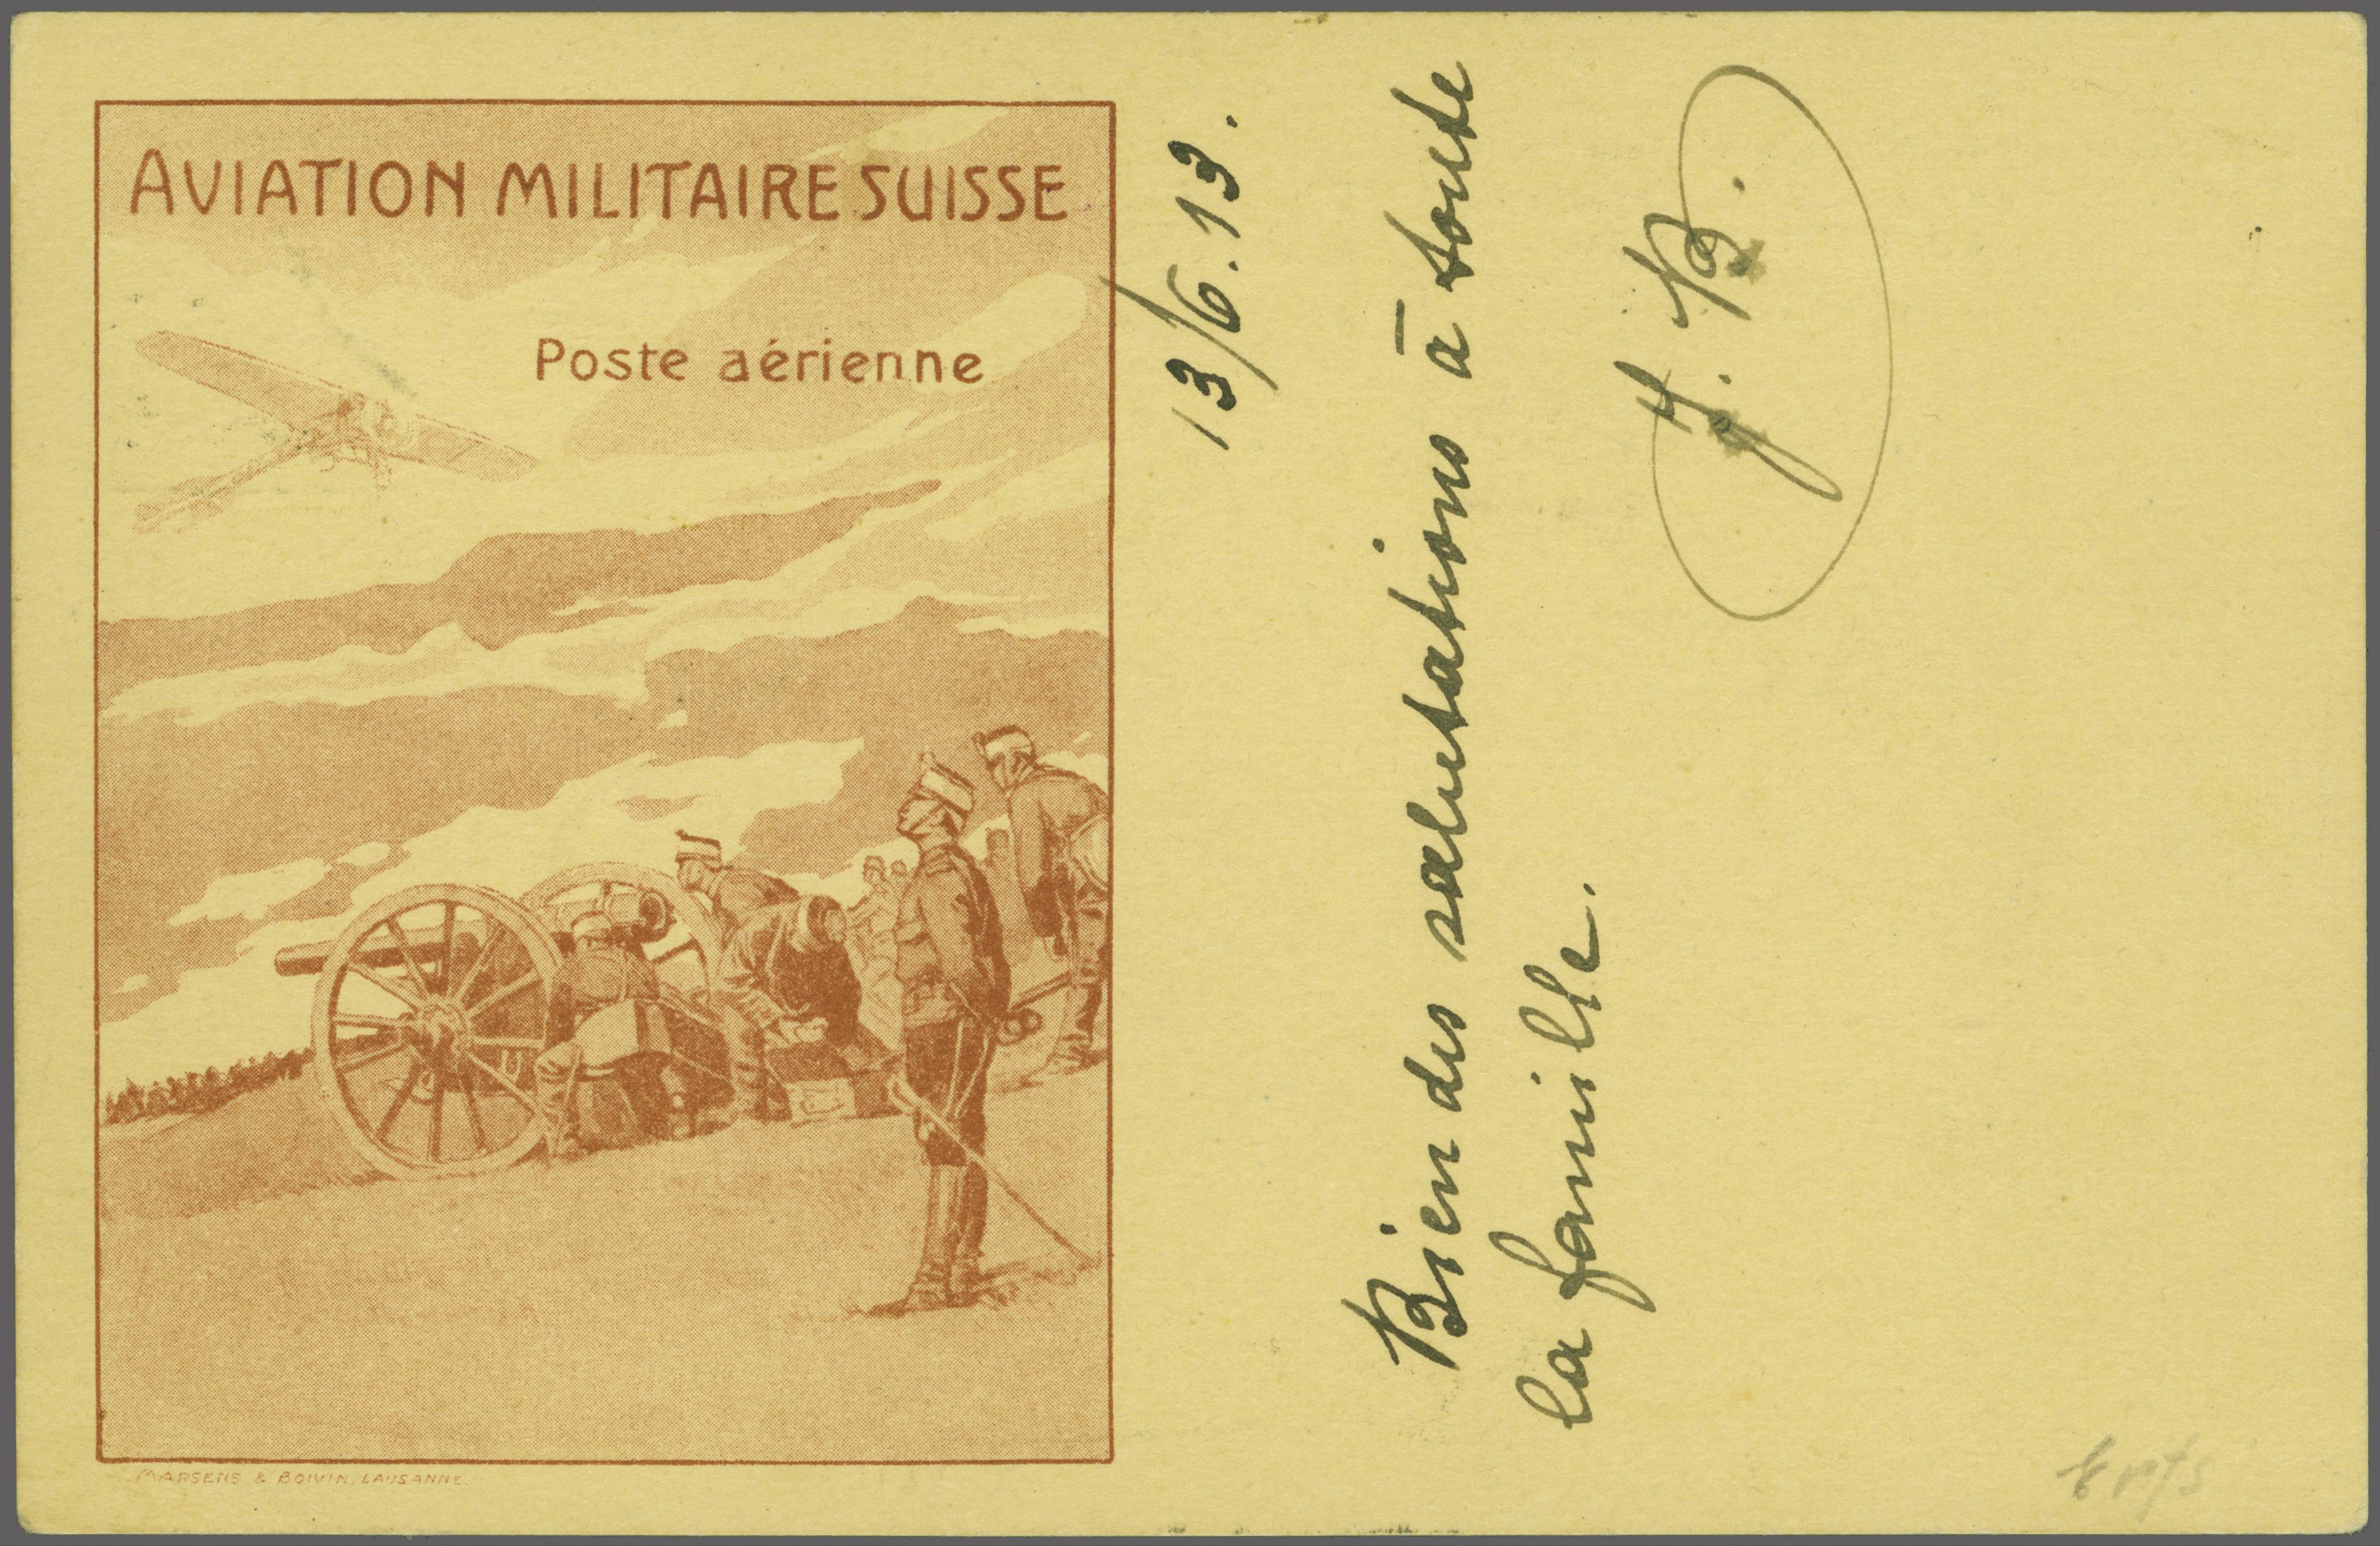 AVIATION MILITAIRE SUISSE
Poste aérienne
MARSENS & BOIVIN, LAUSANNE
13/6.13.
Bien des salutations à toute
la famille.
J. B.